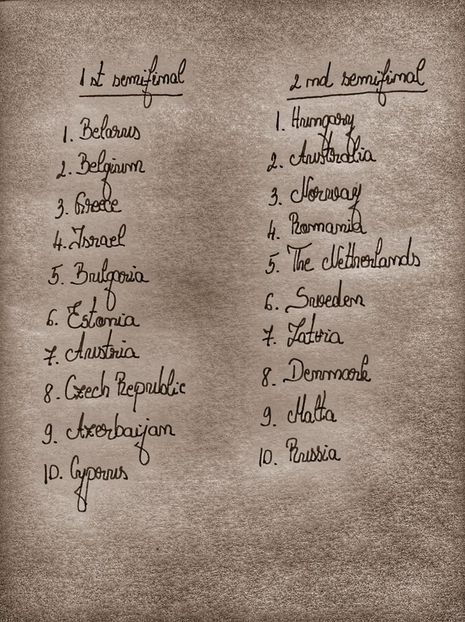 1st semifinal
1. Belarus
2. Belgium
3. Greece
4. Israel
5. Bulgaria
6. Estonia
7. Austria
8. Czech Republic
9. Azerbaijan
10. Cyprus
2nd semifinal
1. Hungary
2. Australia
3. Norway
4. Romania
5. The Netherlands
6. Sweden
7. Latvia
8. Denmark
9. Malta
10. Russia